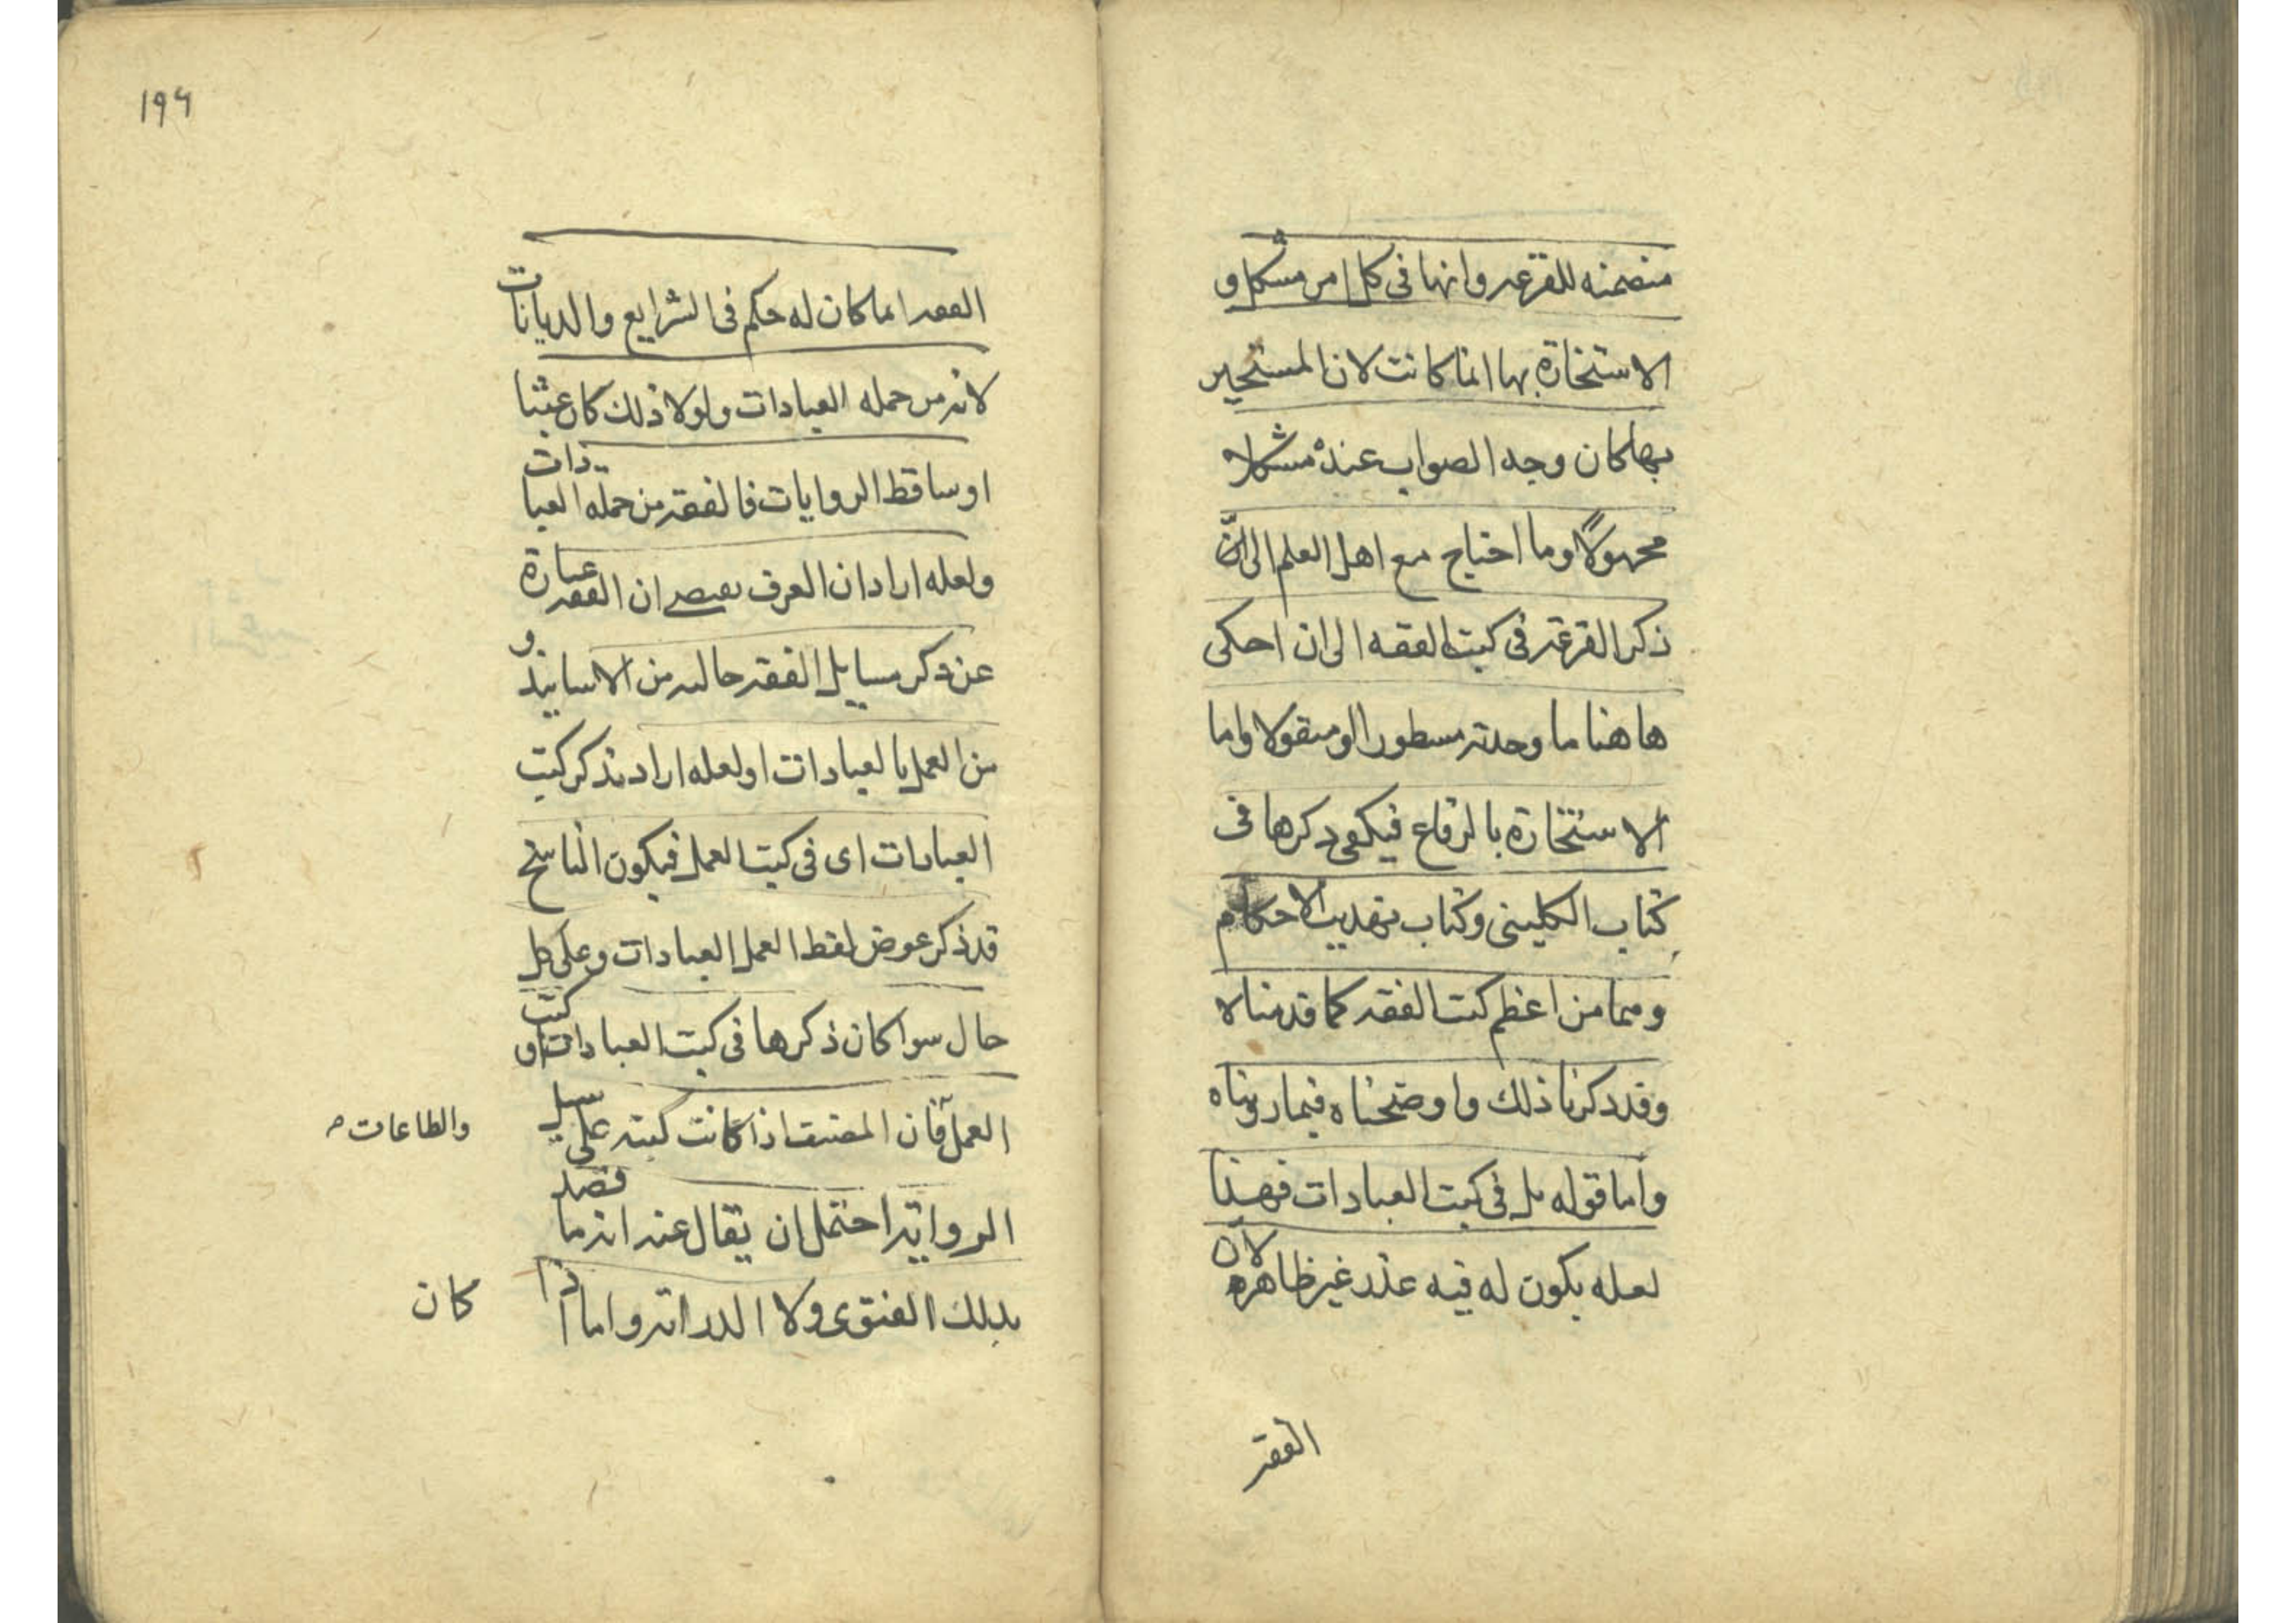 متضمنه للقرعه وانها فى كل امر مشكل و
الاستخارة بها انما كانت لان المستخير
بها كان وجه الصواب عنده مشكلا
مجهولًا وما احتاج مع اهل العلم الى انّ
ذكر القرعة فى كتب الفقه الى ان احكى
هاهنا ما وجدته مسطورا او منقولا واما
الاستخارة بالرقاع فيكفى ذكرها فى
كتاب الكلينى وكتاب تهذيب الاحكام
وهما من اعظم كتب الفقه كما قدمناه
وقد ذكرنا ذلك واوضحناه فيما رويناه
واما قوله بل فى كتب العبادات فهذا
لعله يكون له فيه عذر غير ظاهره لان
الفقه
١٩٦
الفقه انما كان له حكم فى الشرايع والديانات
لانه من جمله العبادات ولولا ذلك كان عبثا
او ساقط الروايات فالفقه من جمله العبادات
ولعله اراد ان العرف يقتضى ان الفقه عبارة
عن ذكر مسايل الفقه خاليه من الاسانيد و
من العمل بالعبادات او لعله اراد بذكر كتب
العبادات اى فى كتب العمل فيكون الناسخ
قد ذكر عوض لفظ العمل العبادات وعلى كل
حال سوا كان ذكرها فى كتب العبادات او كتب
العمل فان المصنف اذا كانت كتبه على سبيل
والطاعات
الرواية احتمل ان يقال عنه انه ما قصد
بذلك الفتوى ولا الدراية واما اذا
كان